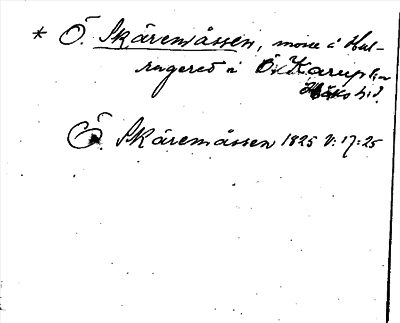 * Ö. Skäremåssen, mosse i Hul-
rugered i Ö. Karup
Ö. Skäremåssen 1825 V: 17: 25